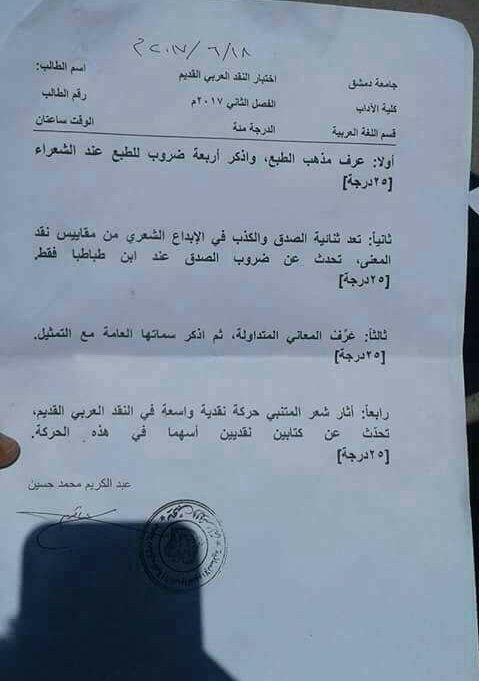 ٢٠١٧/٦/١٨م
جامعة دمشق اختبار النقد العربي القديم اسم الطالب:
كلية الآداب الفصل الثاني ٢٠١٧م رقم الطالب
قسم اللغة العربية الدرجة مئة الوقت ساعتان
أولا: عرف مذهب الطبع، واذكر أربعة ضروب للطبع عند الشعراء
[٢٥درجة]
ثانياً: تعد ثنائية الصدق والكذب في الإبداع الشعري من مقاييس نقد
المعنى، تحدث عن ضروب الصدق عند ابن طباطبا فقط.
[٢٥درجة]
ثالثاً: عَرِّفْ المعاني المتداولة، ثم اذكر سماتها العامة مع التمثيل.
[٢٥درجة]
رابعاً: أثار شعر المتنبي حركة نقدية واسعة في النقد العربي القديم،
تحدّث عن كتابين نقديين أسهما في هذه الحركة.
[٢٥درجة]
عبد الكريم محمد حسين